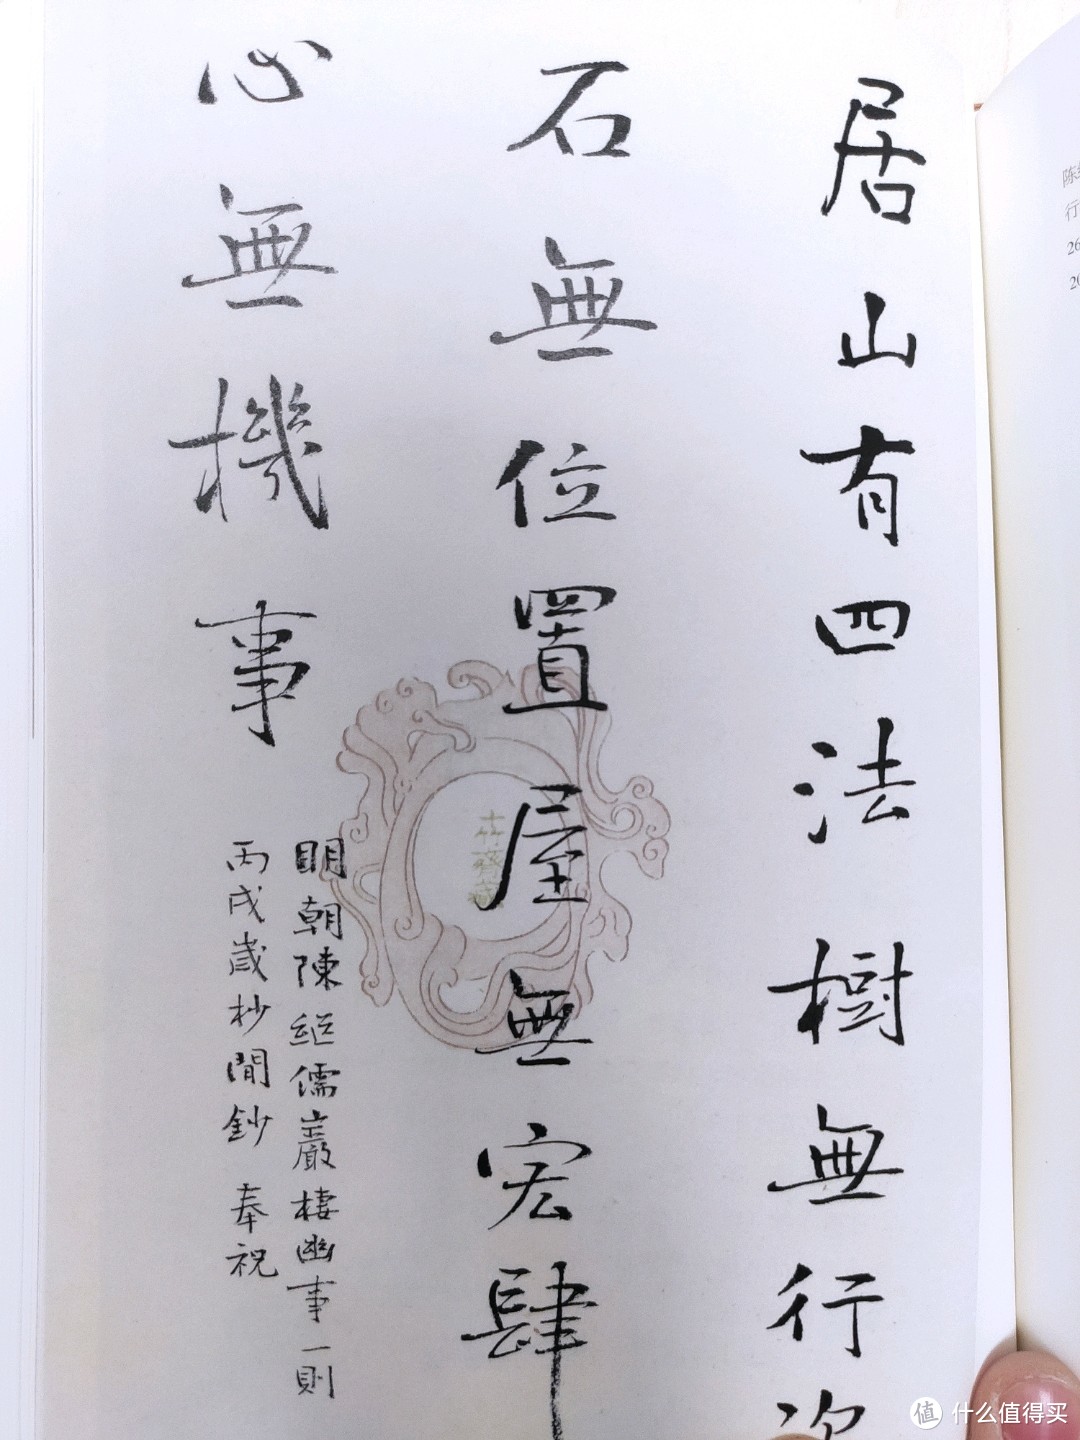 居山有四法樹無行次
石無位置屋無宏肆
心無機事
明朝陳繼儒巖棲幽事一則
丙戌歲杪閒鈔 奉祝
十竹齋藏
陈继
行
26
20
值 什么值得买